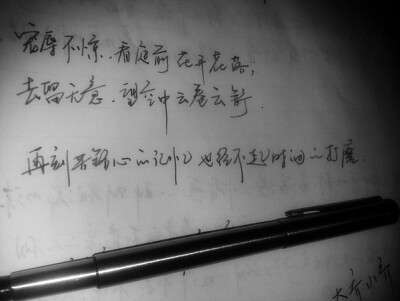 宠辱不惊.看庭前花开花落;
去留无意.望空中云卷云舒.
再刻骨铭心的记忆也经不起时间的打磨.